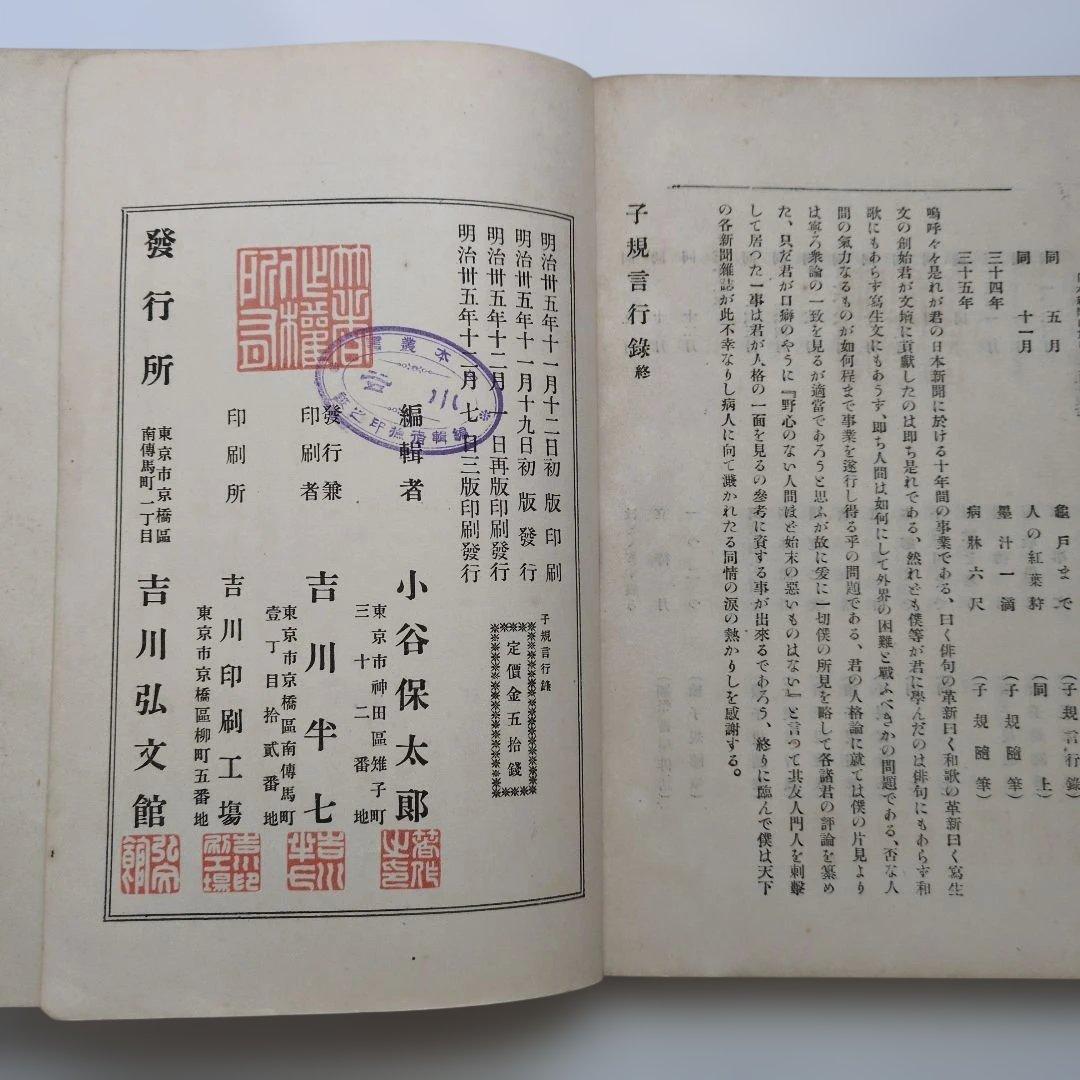 同 五月 龜戸まで (子規言行錄)
同 十一月 人の紅葉狩 (同上)
三十四年 墨汁一滴 (子規隨筆)
三十五年 病牀六尺 (子規隨筆)
嗚呼々々是れが君の日本新聞に於ける十年間の事業である、曰く俳句の革新曰く和歌の革新曰く寫生
文の創始君が文壇に貢獻したのは即ち是れである、然れども僕等が君に學んだのは俳句にもあらず和
歌にもあらず寫生文にもあらず、即ち人間は如何にして外界の困難と戰ふべきかの問題である、否な人
間の氣力なるものが如何程まで事業を遂行し得る乎の問題である、君の人格論に就ては僕の片見より
は寧ろ衆論の一致を見るが適當であろうと思ふが故に爰に一切僕の所見を略して各諸君の評論を纂め
た、只だ君が口癖のやうに『野心のない人間ほど始末の惡いものはない』と言つて其友人門人を刺擊
して居つた一事は君が人格の一面を見るの參考に資する事が出來るであろう、終りに臨んで僕は天下
の各新聞雜誌が此不幸なりし病人に向て濺かれたる同情の淚の熱かりしを感謝する。
子規言行錄 終
明治卅五年十一月十二日初版印刷
明治卅五年十一月十九日初版發行
明治卅五年十二月一日再版印刷發行
明治卅五年十二月七日三版印刷發行
子規言行錄
定價金五拾錢
編輯者 小谷保太郎
東京市神田區雉子町
三十二番地
發行兼
印刷者 吉川半七
東京市京橋區南傳馬町
壹丁目拾貳番地
印刷所 吉川印刷工塲
東京市京橋區柳町五番地
發行所 吉川弘文館
東京市京橋區
南傳馬町一丁目
著作
之印
吉川
半七
吉川印
刷工場
弘文
館